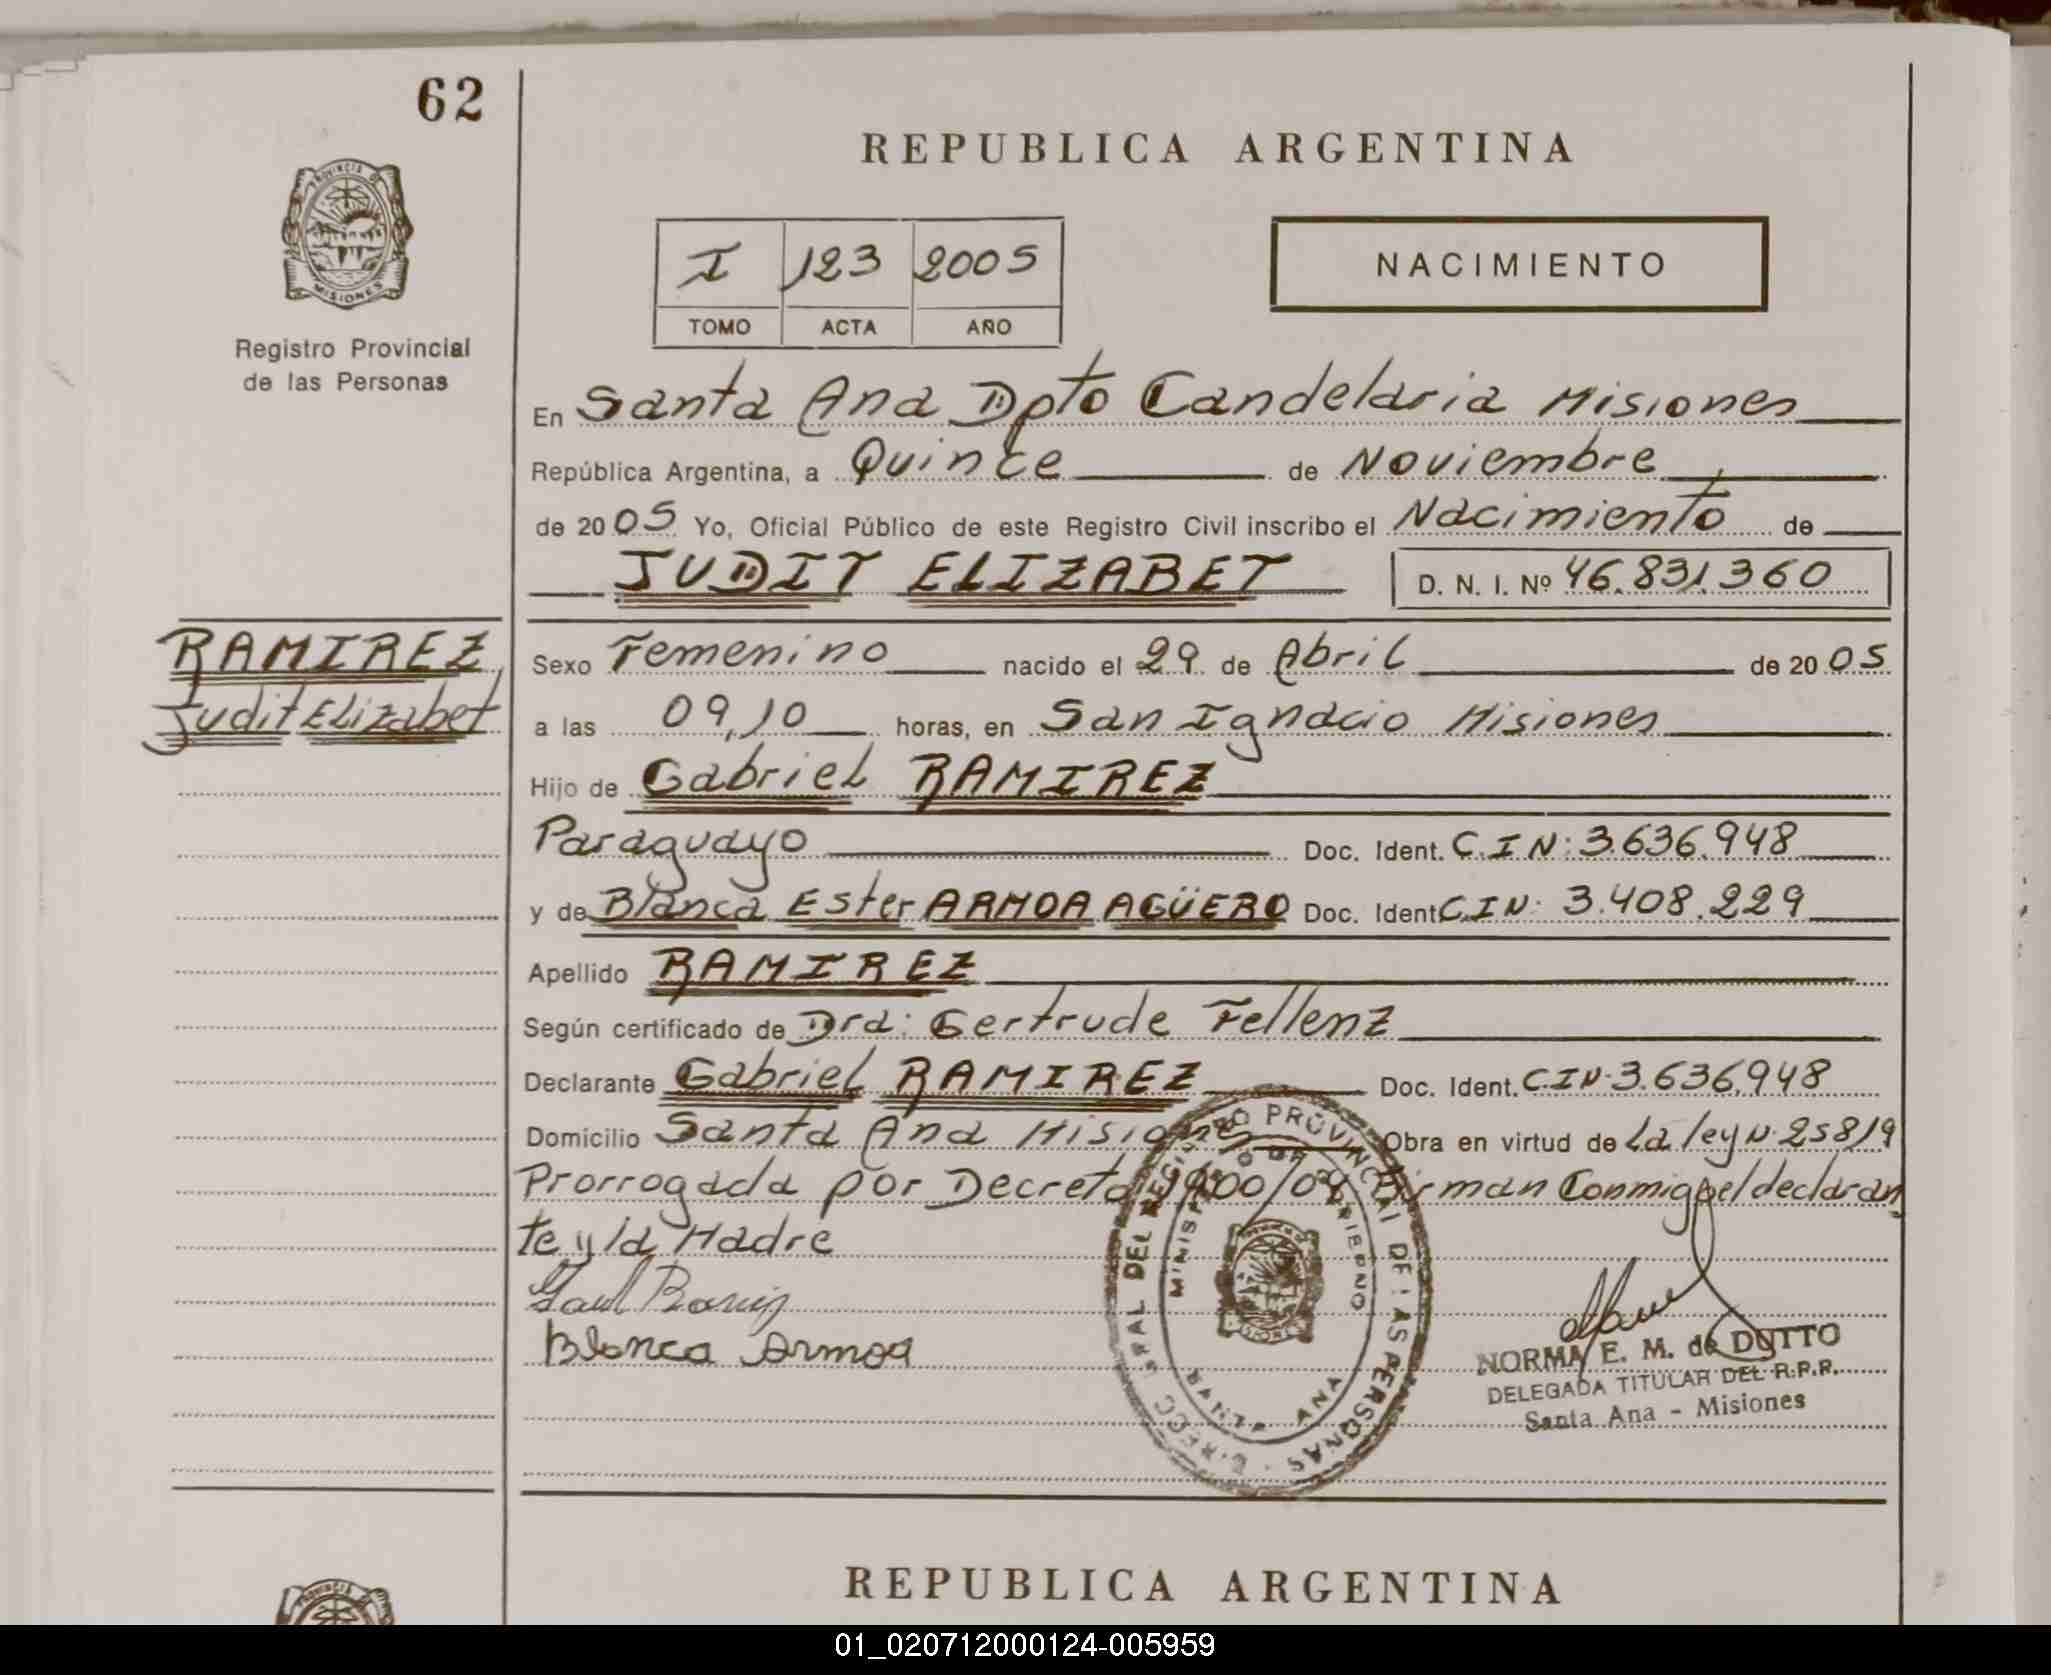 62
REPUBLICA ARGENTINA
PROVINCIA DE
MISIONES
Registro Provincial
de las Personas
I 123 2005
TOMO ACTA AÑO
NACIMIENTO
En Santa Ana Dpto Candelaria Misiones
República Argentina, a Quince de Noviembre
de 2005 Yo, Oficial Público de este Registro Civil inscribo el Nacimiento de
JUDIT ELIZABET D. N. I. Nº 46.831.360
RAMIREZ
Judit Elizabet
Sexo Femenino nacido el 29 de Abril de 2005
a las 09,10 horas, en San Ignacio Misiones
Hijo de Gabriel RAMIREZ
Paraguayo Doc. Ident. C.I N: 3.636.948
y de Blanca Ester ARMOA AGÜERO Doc. Ident C.I N: 3.408.229
Apellido RAMIREZ
Según certificado de Dra: Gertrude Fellenz
Declarante Gabriel RAMIREZ Doc. Ident. C.I N: 3.636.948
Domicilio Santa Ana Misiones Obra en virtud de La ley N. 25819
Prorrogada por Decreto 1900/04 Firman Conmigo el declaran
te y la Madre
Blanca Armoa
REGISTRO PROVINCIAL DE LAS PERSONAS
MINISTERIO DE GOBIERNO
ANA
NORMA E. M. de DUTTO
DELEGADA TITULAR DEL R.P.P.
Santa Ana - Misiones
REPUBLICA ARGENTINA
PROVINCIA
01_020712000124-005959